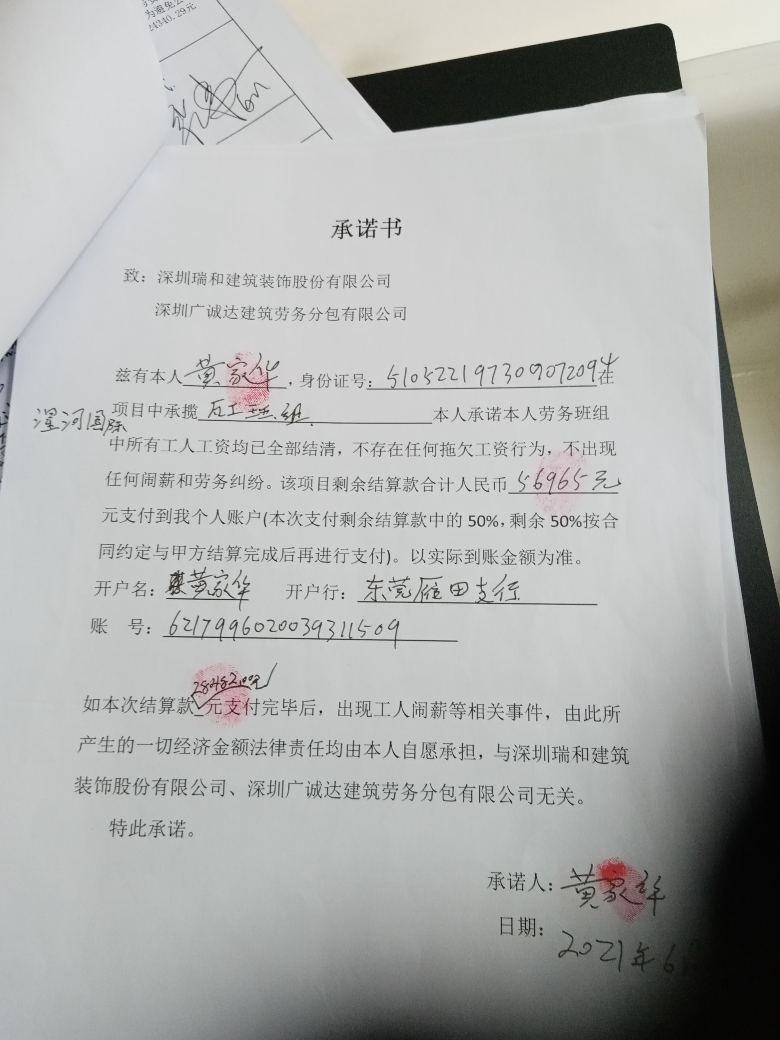 为避免
24340.29元
承诺书
致：深圳瑞和建筑装饰股份有限公司
深圳广诚达建筑劳务分包有限公司
兹有本人黄家华，身份证号：510522197309072094在
漯河国际项目中承揽瓦工班组本人承诺本人劳务班组
中所有工人工资均已全部结清，不存在任何拖欠工资行为，不出现
任何闹薪和劳务纠纷。该项目剩余结算款合计人民币56965元
元支付到我个人账户(本次支付剩余结算款中的50%，剩余50%按合
同约定与甲方结算完成后再进行支付)。以实际到账金额为准。
开户名：黄家华 开户行：东莞雁田支行
账 号：6217996020039311509
如本次结算款28482.00元元支付完毕后，出现工人闹薪等相关事件，由此所
产生的一切经济金额法律责任均由本人自愿承担，与深圳瑞和建筑
装饰股份有限公司、深圳广诚达建筑劳务分包有限公司无关。
特此承诺。
承诺人：黄家华
日期：2021年6